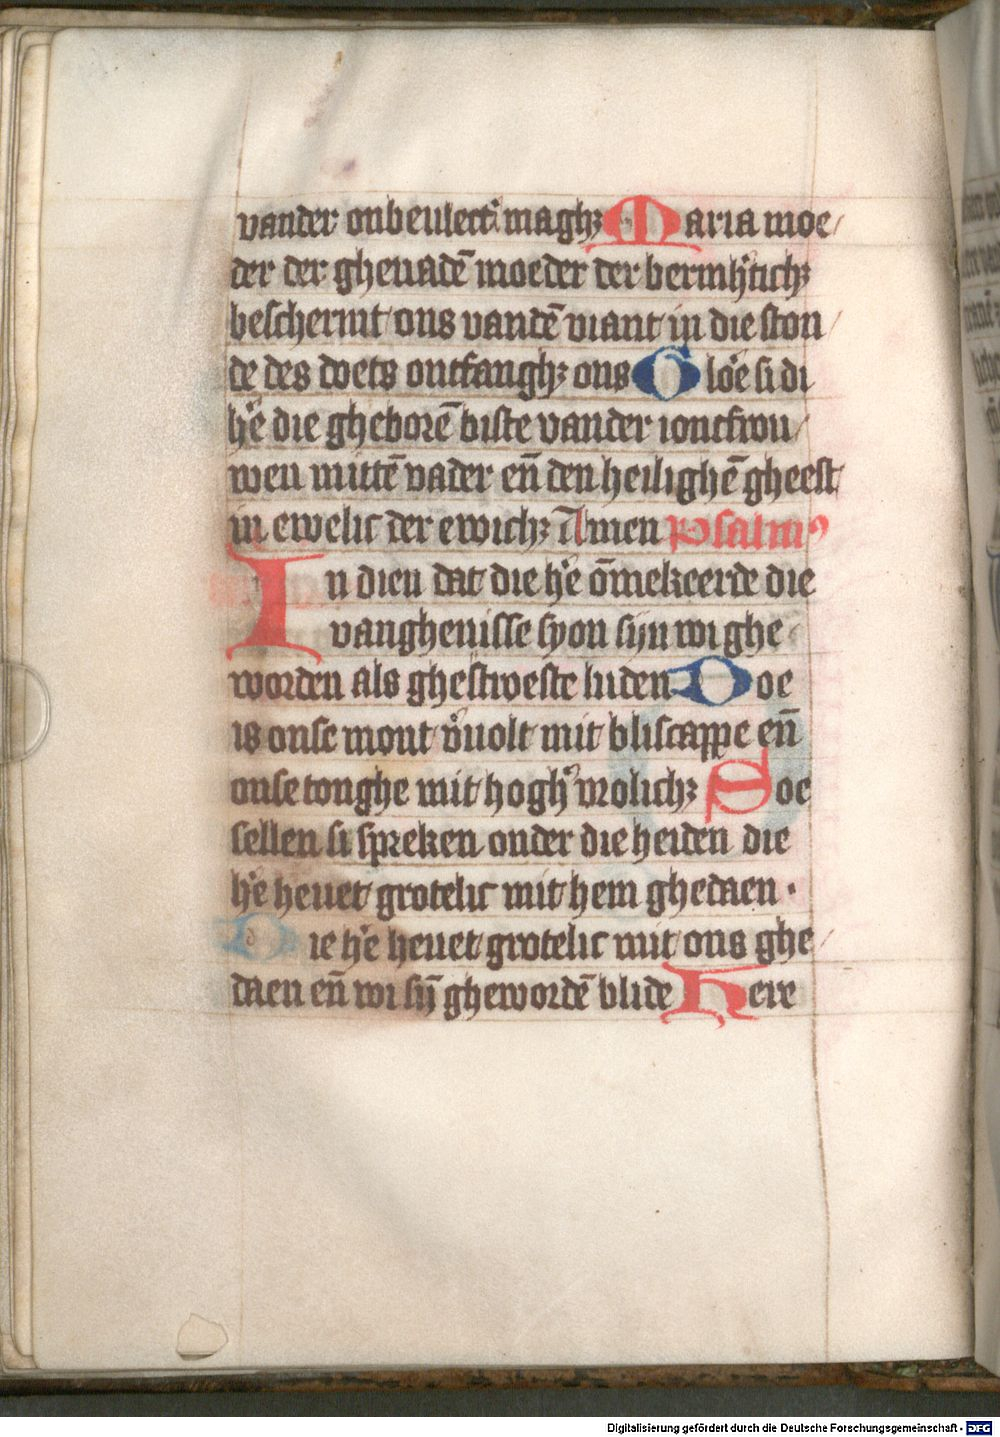 vander onbeulect' magh₃ Maria moe/
der der ghenadē moeder der bermh'tich₃
beschermt ons vandē viant in die ston/
de des doets ontfangh₃ ons Glo'e si di
h'e die gheborē biste vander ioncfrou/
wen mittē vader eñ den heilighē gheest
in ewelic der ewich₃ Amen Psalmꝰ
In dien dat die h'e ōmekeerde die
vanghenisse syon sijn wi ghe
worden als ghestroeste luden Doe
is onse mont v'uolt mit bliscappe eñ
onse tonghe mit hogh' vrolich₃ Soe
sellen si spreken onder die heiden die
h'e heuet grotelic mit hem ghedaen ·
Die h'e heuet grotelic mit ons ghe/
daen eñ wi sijn̄ ghewordē blide Here
Digitalisierung gefördert durch die Deutsche Forschungsgemeinschaft - DFG